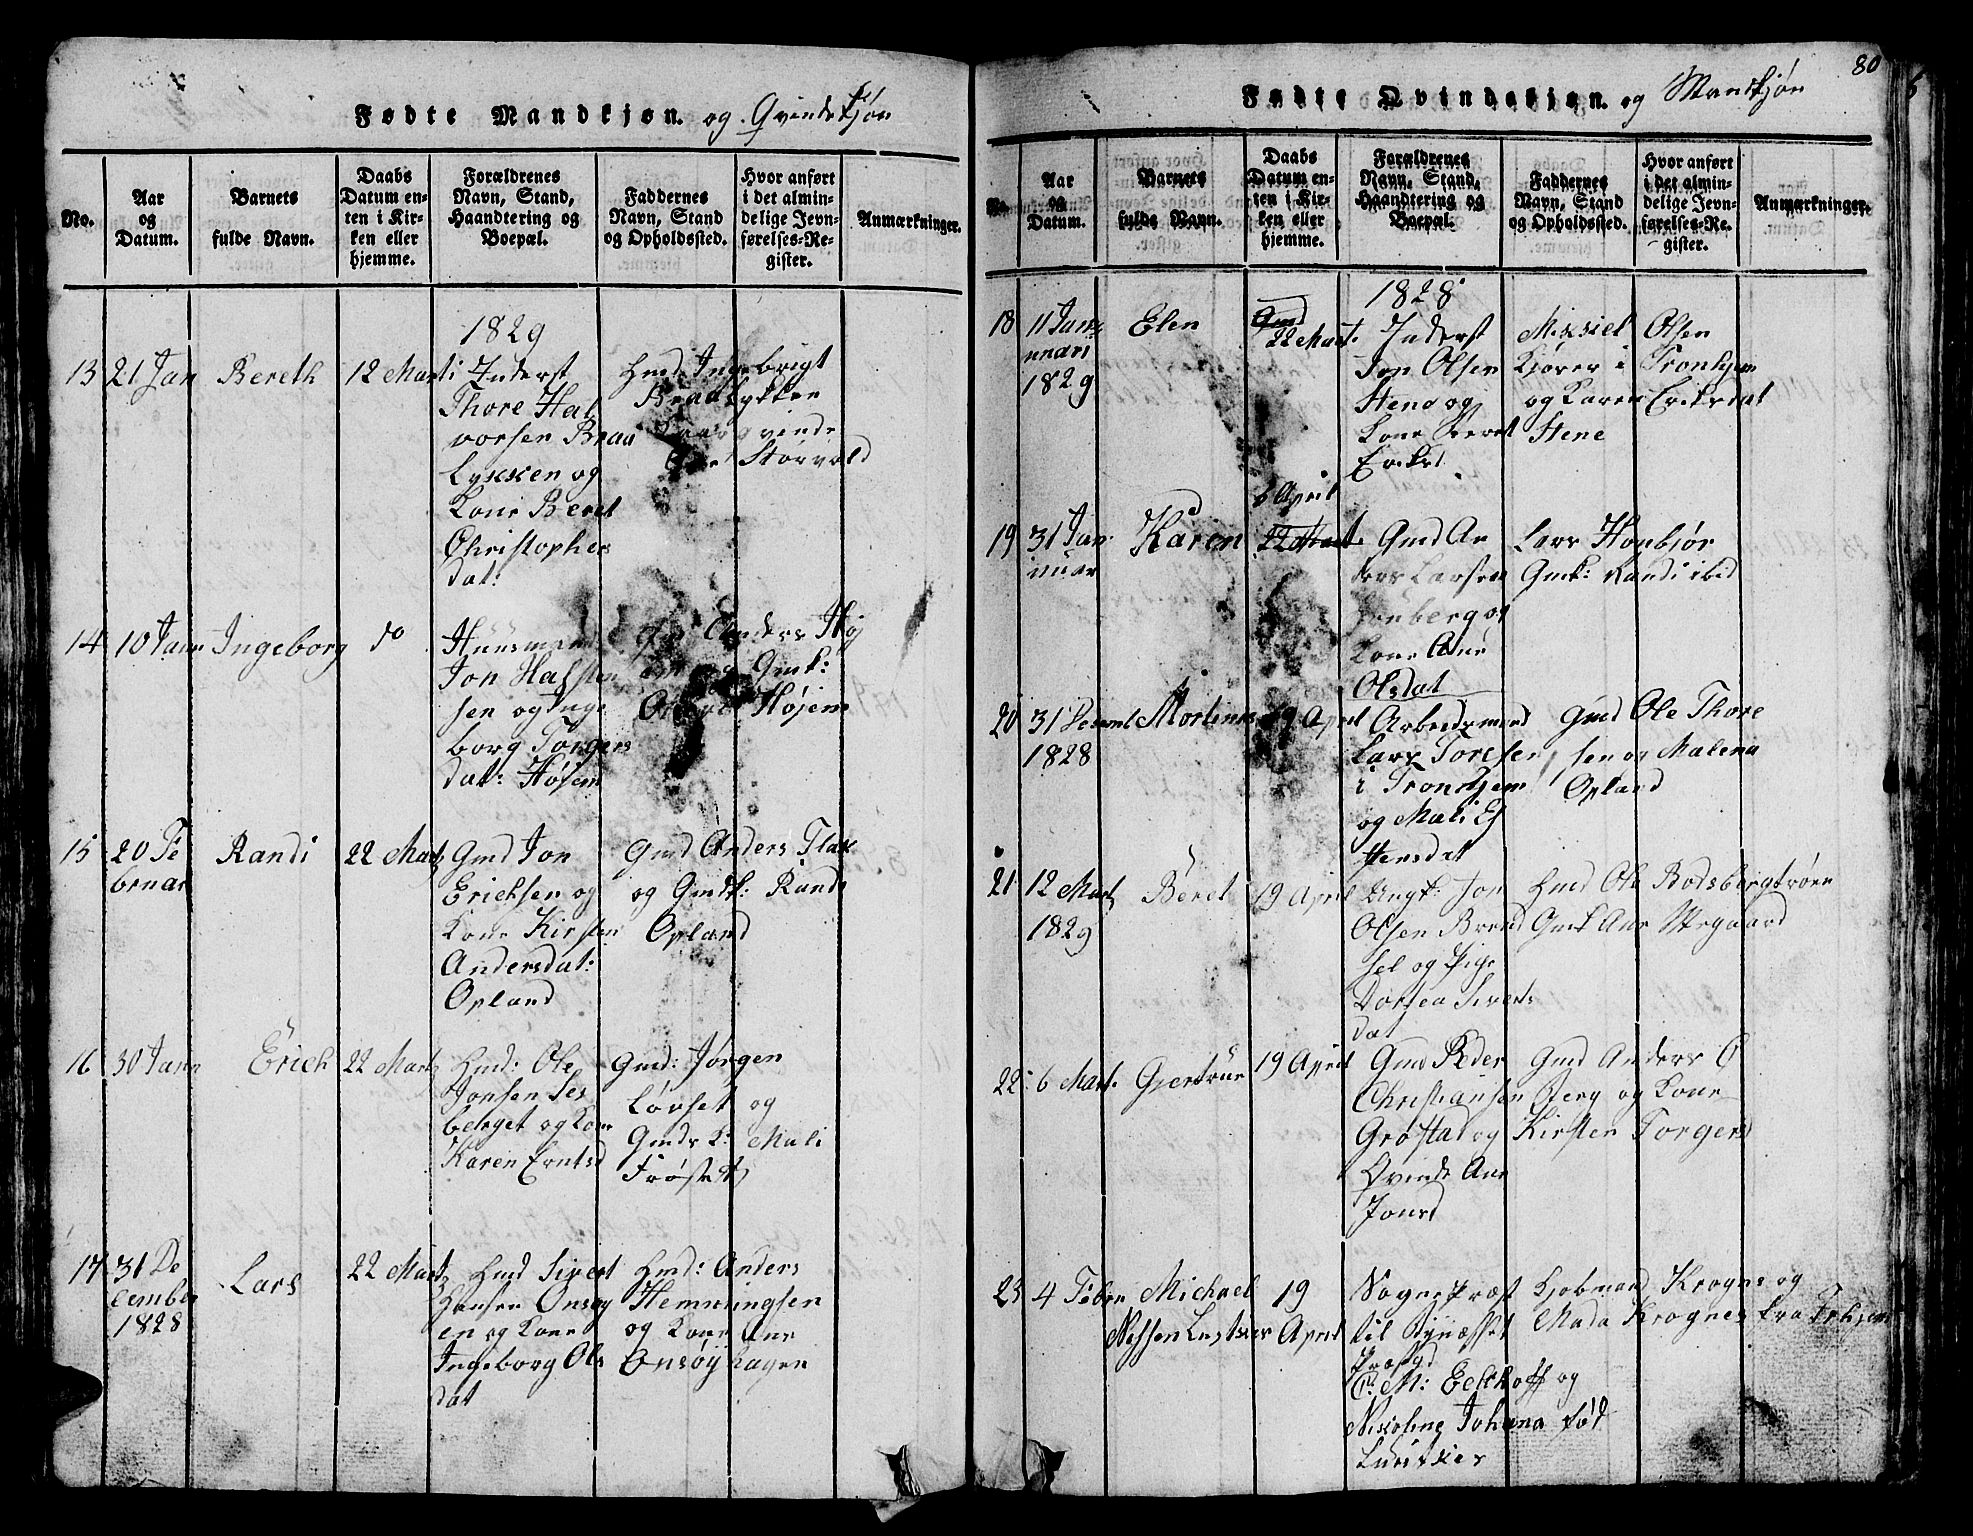 Fødte Mandkjøn. og Qvindekjøn
No.
Aar og Datum.
Barnets fulde Navn.
Daabs Datum enten i Kirken eller hjemme.
Forældrenes Navn, Stand, Haandtering og Boepæl.
Faddernes Navn, Stand og Opholdssted.
Hvor anført i det almindelige Jevnførelses-Register.
Anmærkninger.
1829
13 21 Jan Bereth 12 Marti Inderst
Thore Hal
vorsen Braa
Lykken og
Kone Beret
Christophers
dat:
Hmd Ingebrigt
Braa Lykken
Størvold
14 10 Janr Ingeborg do Huusman
Jon Halsten
sen og Inge
borg Torgers
dat: Høsem
Anders Høj
og Gmk:
Højem
15 20 Fe
bruar
Randi 22 Marti Gmd Jon
Erichsen og
Kone Kirsten
Andersdat:
Opland
Gmd Anders Flak
og Gmdk: Randi
Opland
16 30 Janr Erich 22 Marti Hmd: Ole
Jonsen Ses
berget og Kone
Karen Erntsd
Gmd: Jørgen
Løvset og
Gmds K: Mali
Frøset
17 31 De
cember
1828
Lars 22 Marti Hmd Sivert
Hansen Onsøy
en og Kone
Ingeborg Ols
dat
Hmd: Anders
Hemmingsen
og Kone Ane
Onsøyhagen
80
Fødte Qvindekjøn. og Mandkjøn
No.
Aar og Datum.
Barnets fulde Navn.
Daabs Datum enten i Kirken eller hjemme.
Forældrenes Navn, Stand, Haandtering og Boepæl.
Faddernes Navn, Stand og Opholdssted.
Hvor anført i det almindelige Jevnførelses-Register.
Anmærkninger.
1828
18 11 Jan
nuari
1829
Elen Gmd
22 Mart. Inderst
Jon Olsen
Steno og
Kone Beret
Ericksd
Mikkel Olsen
Kjører i Tronhjem
og Karen Eriksdat
Stene
19 31 Jan
nuar
Karen 6 April
22 Mart. Gmd An
ders Larsen
Honberg og
Kone Ane
Olsdat
Lars Honbjør
Gmk: Randi ibid
20 31 Desembr
1828
Mortinus 19 April Arbeidsmand
Lars Toresen
i Tronhjem
og Mali Ef
stensdat
Gmd Ole Thore
sen og Malena
Opland
21 12 Mart
1829
Beret 19 April Ungk: Jon
Olsen Brend
sel og Pige
Dorthea Siverts
dat
Hmd Ole Bodsbergtrøen
Gmk Ane Wegaard
22 6 Mart. Gjertrue 19 April Gmd Peder
Christiansen
Grøstad og
Qvinde Ane
Jonsd
Gmd Anders Ø
sterg og Kone
Kirsten Torgersd
23 4 Febr Michael
Nyssen Lustrier
19
April
Sogneprest
til Bynæsset
Præstgd
C: M: Eckhoff og
Nikoline Johana fød
Lustrier
Kjøbmand Krognes og
Mada Krognes fra Trhjem